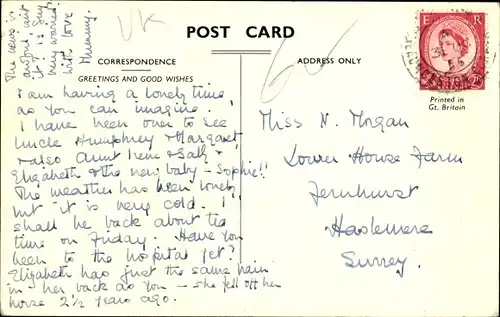 POST CARD
CORRESPONDENCE
GREETINGS AND GOOD WISHES
I am having a lovely time
as you can imagine.
I have been over to see
Uncle Humphrey & Margaret,
& also Aunt Irene & Sally &
Elizabeth & the new baby - Sophie!!
The weather has been lovely,
but it is very cold. I
shall be back about tea
time on Friday. Have you
been to the hospital yet?
Elizabeth has just the same pain
in her back as you - she fell off her
horse 2½ years ago.
The news is
awful, isn't
it? is
very worried
with love
Mummy.
ADDRESS ONLY
E R
Printed in
Gt. Britain
Miss N. Morgan
Lower House Farm
Fernhurst
Haslemere
Surrey.